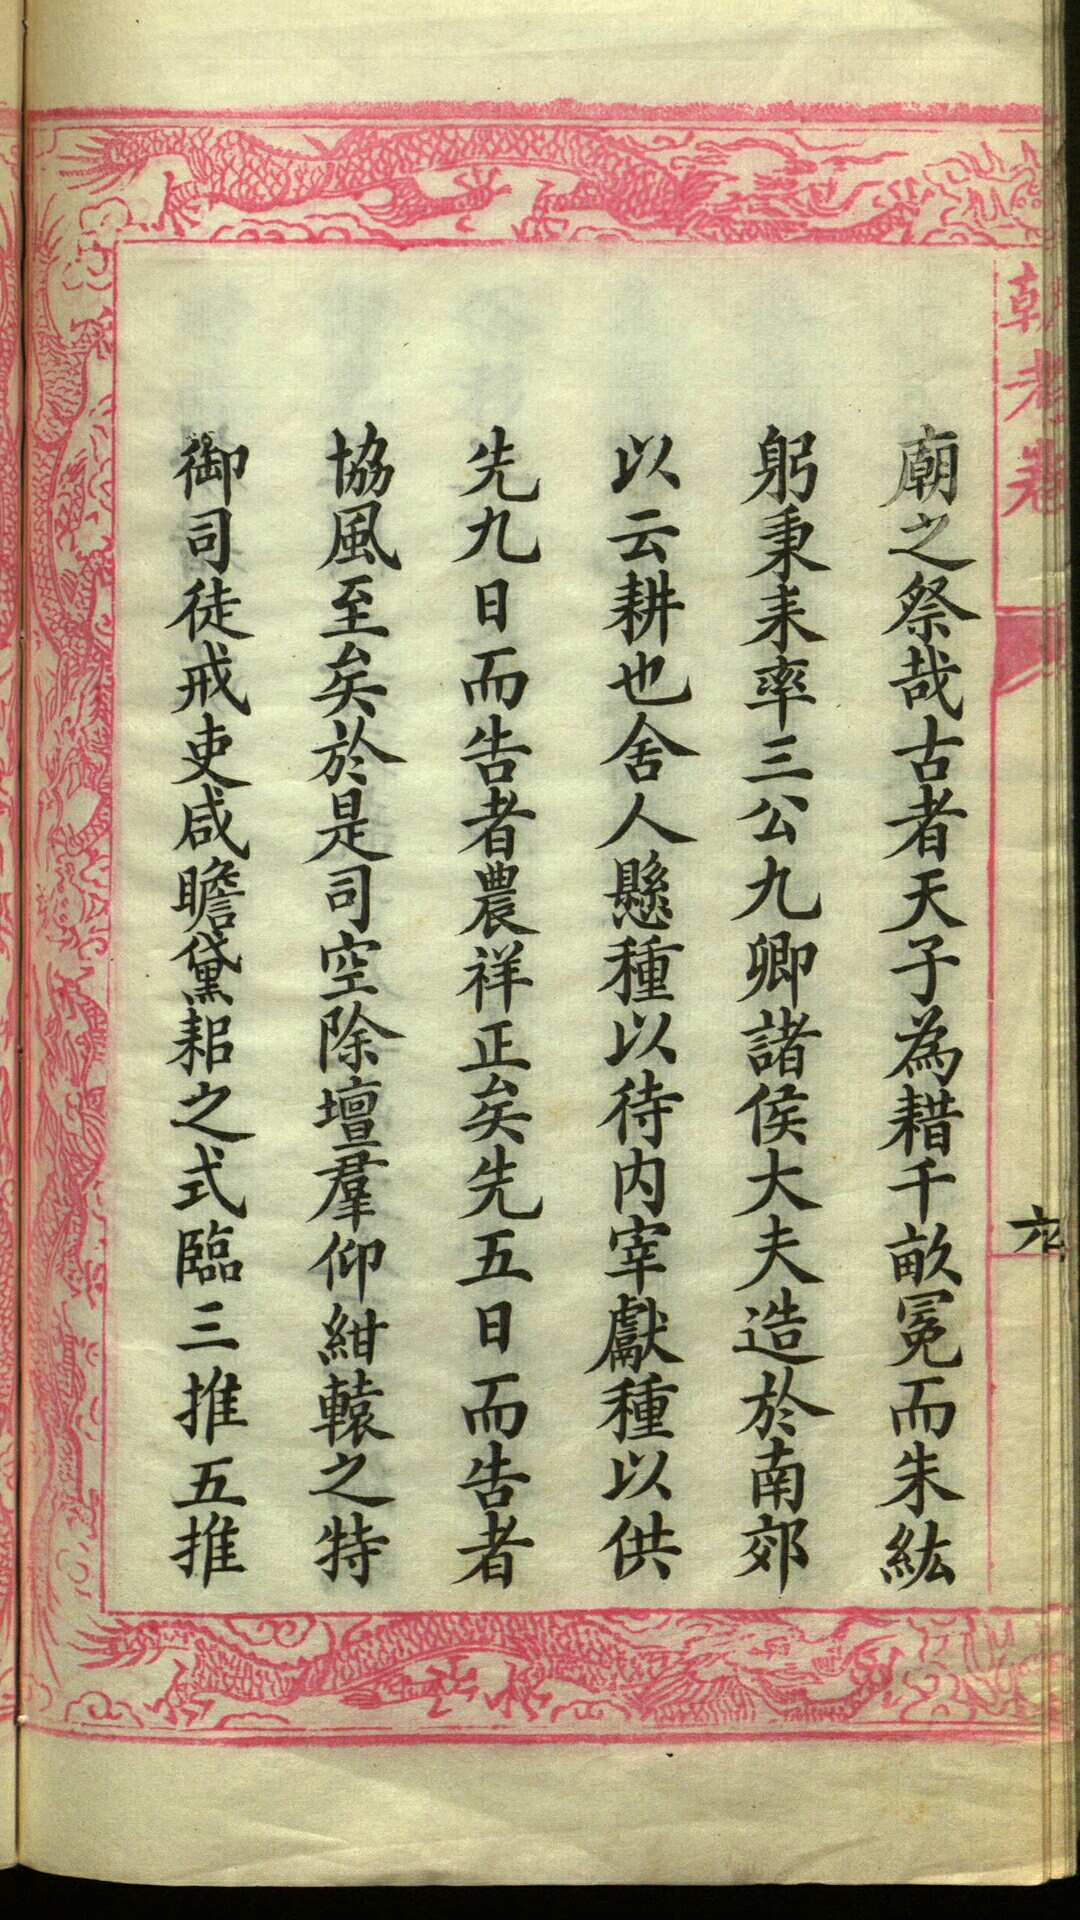 朝考卷
六
廟之祭哉古者天子為耤千畝冕而朱紘
躬秉耒率三公九卿諸侯大夫造於南郊
以云耕也舍人懸種以待内宰獻種以供
先九日而告者農祥正矣先五日而告者
協風至矣於是司空除壇羣仰紺轅之特
御司徒戒吏咸瞻黛耜之式臨三推五推